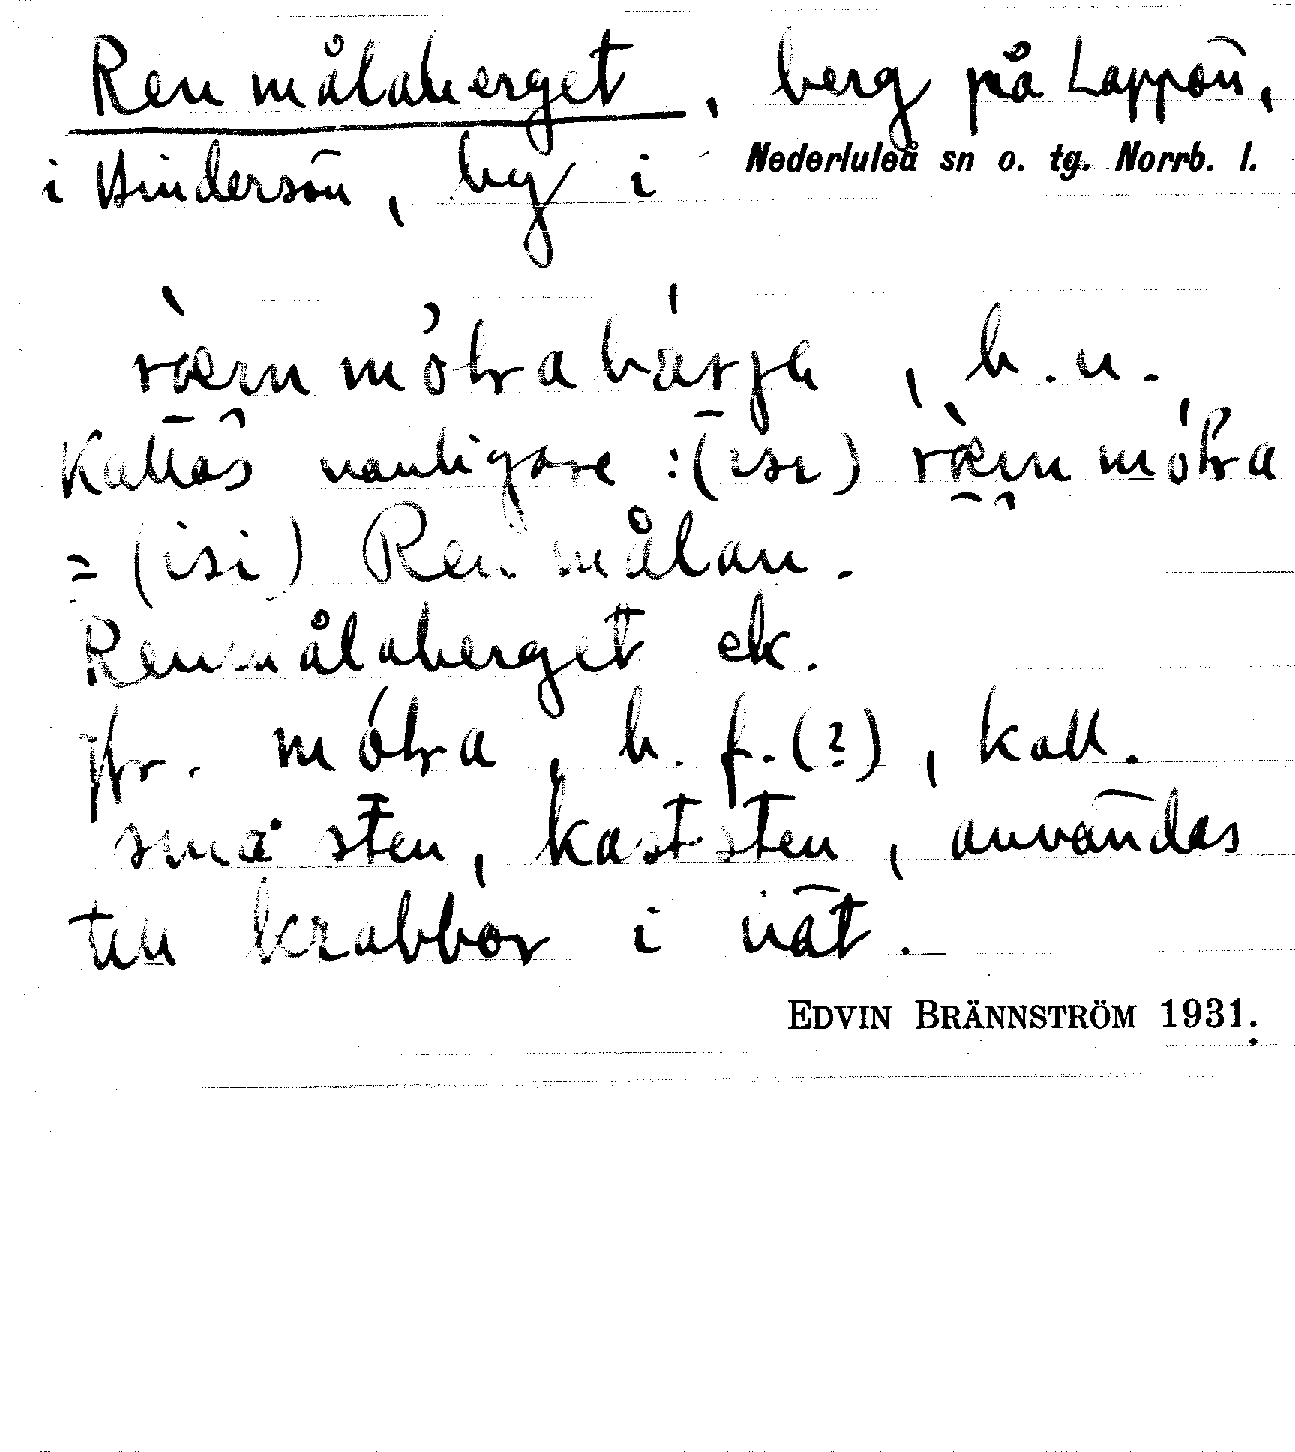 Renmålaberget, berg på Lappön,
i Hindersön, by i Nederluleå sn o. tg. Norrb. l.
b.n.
Kallas vanligare: (isi)
= (isi) Ren målan.
Renmålaberget ek.
jfr. mólra, b. f. (?), koll.
små sten, kaststen, användas
till krabbor i nät.
EDVIN BRÄNNSTRÖM 1931.